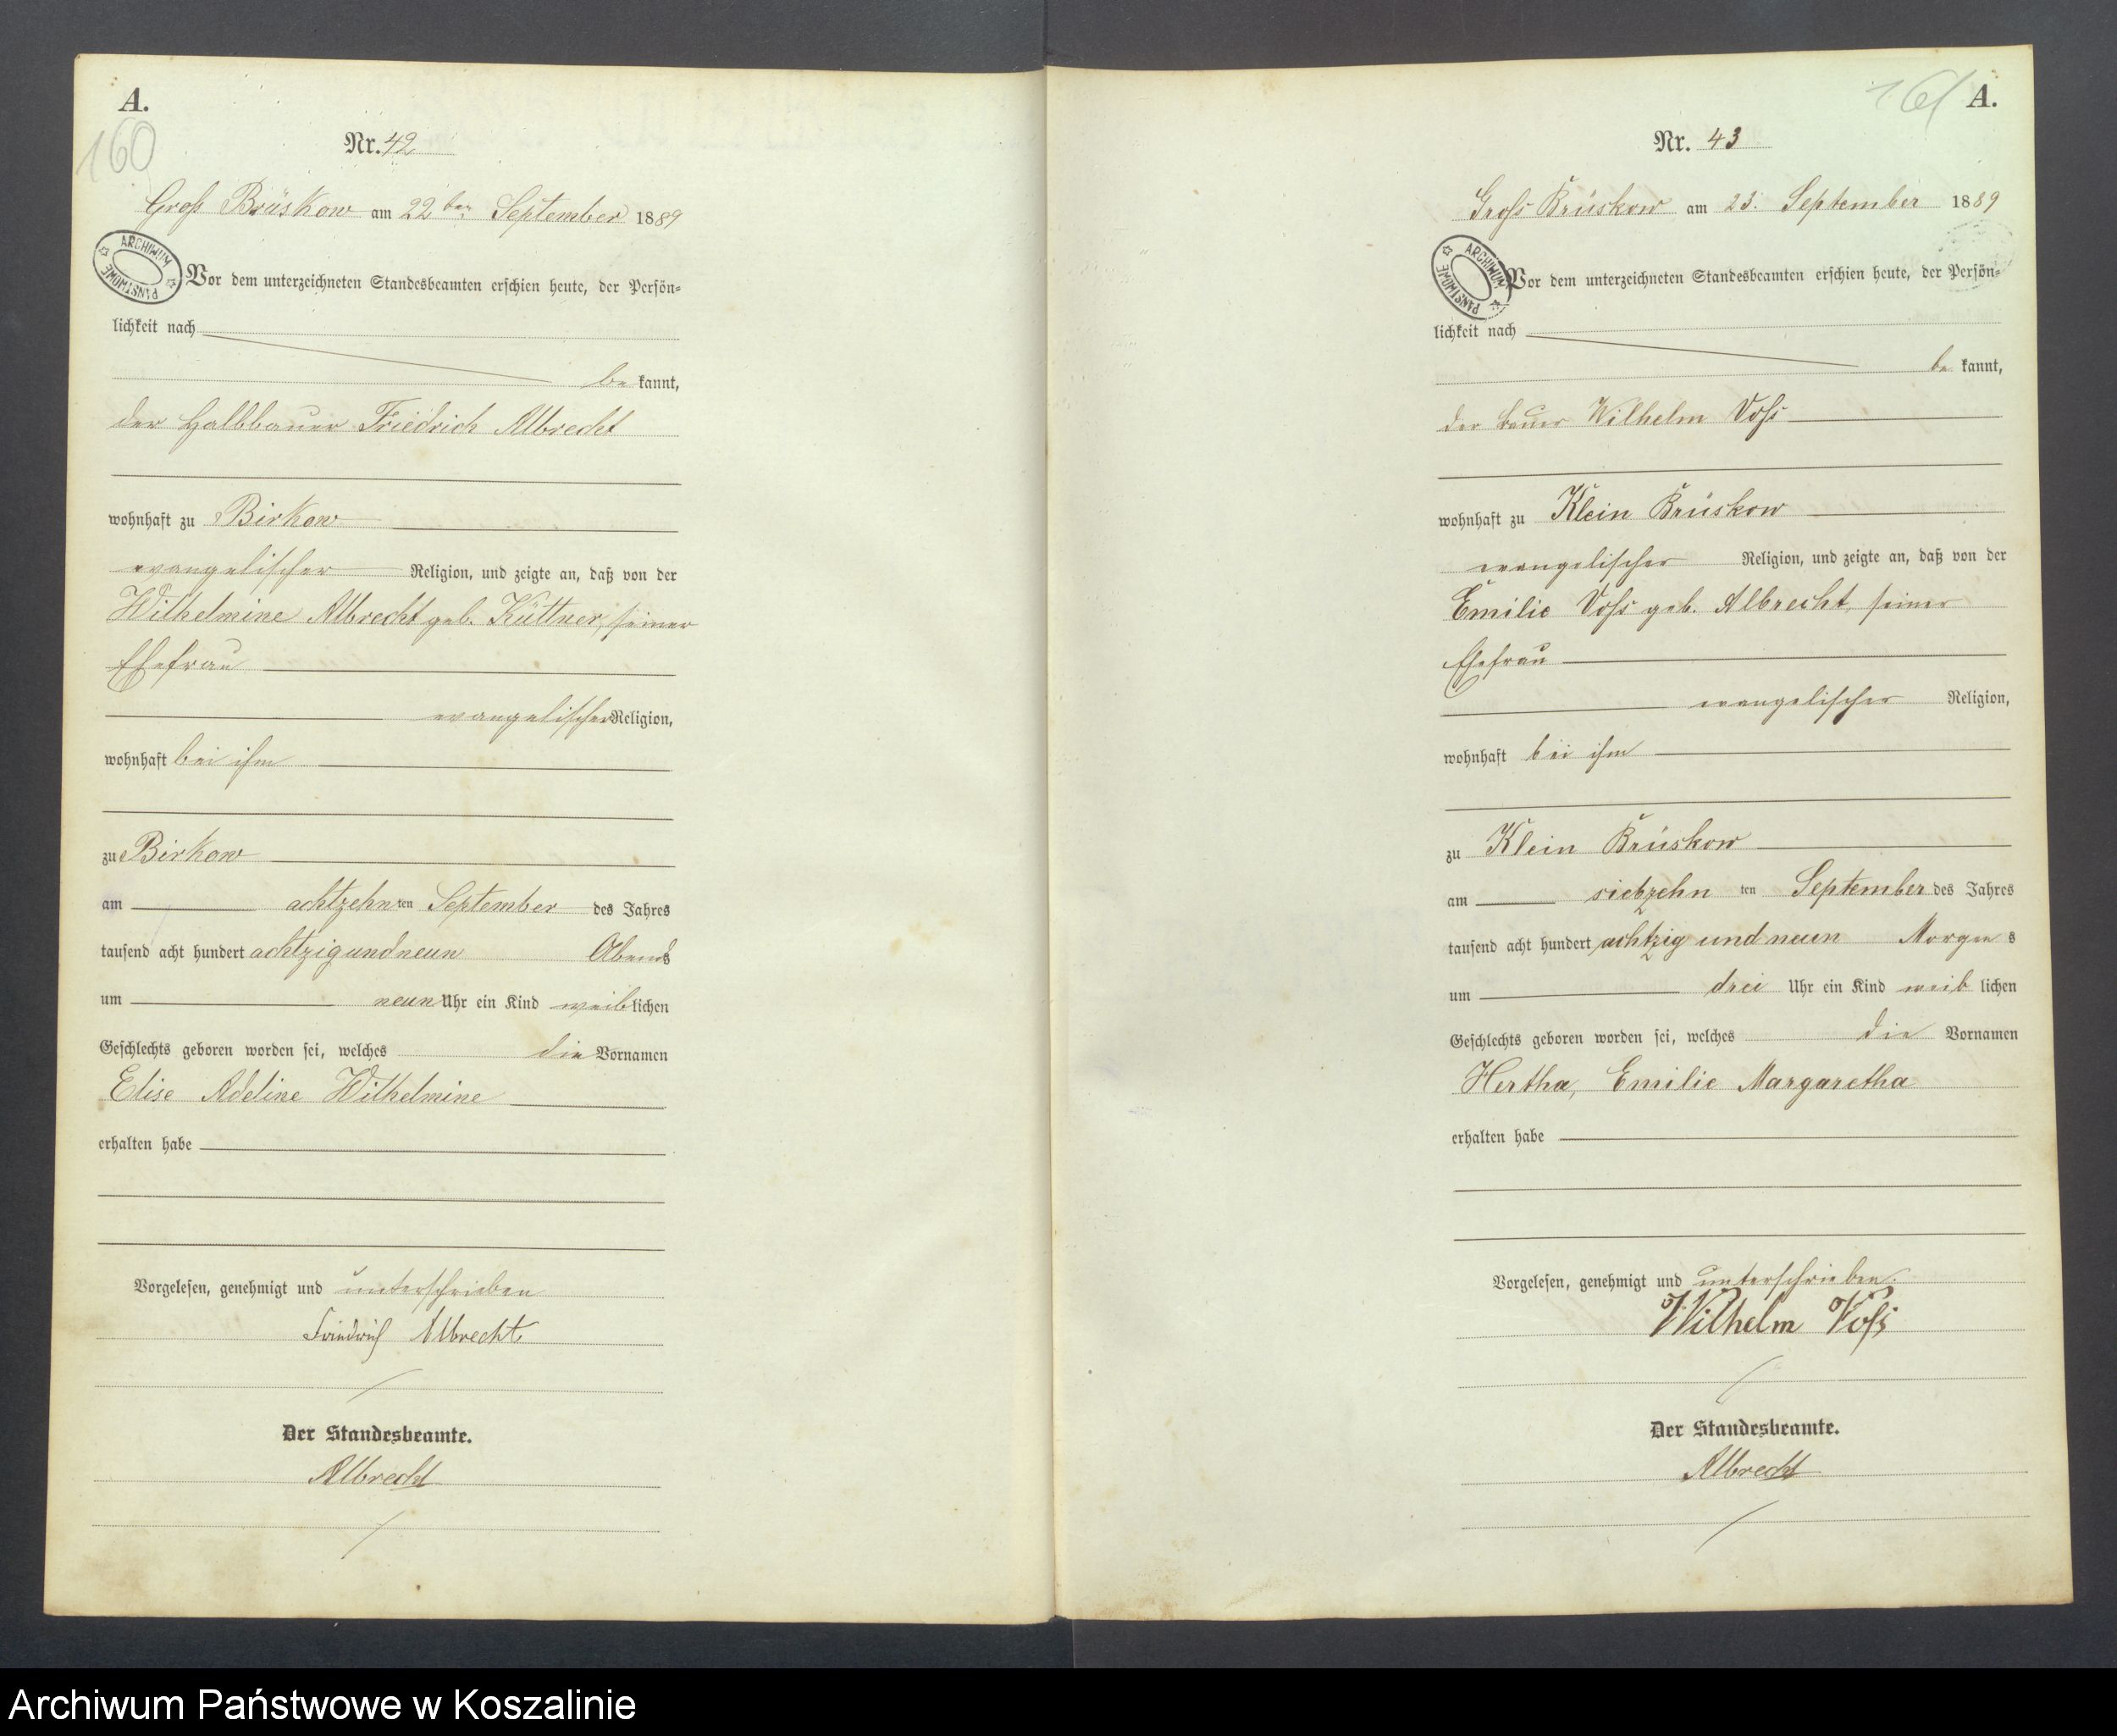 A.
160
Nr. 42
Groß Brüskow am 22ten September 1889
ARCHIWUM PAŃSTWOWE
Vor dem unterzeichneten Standesbeamten erschien heute, der Persön=
lichkeit nach
be kannt,
der Halbbauer Friedrich Albrecht
wohnhaft zu Birkow
evangelischer Religion, und zeigte an, daß von der
Wilhelmine Albrecht geb. Küttner, seiner
Ehefrau
evangelischer Religion,
wohnhaft bei ihm
zu Birkow
am achtzehnten September des Jahres
tausend acht hundert achtzigundneun Abends
um neun Uhr ein Kind weiblichen
Geschlechts geboren worden sei, welches die Vornamen
Elise Adeline Wilhelmine
erhalten habe
Vorgelesen, genehmigt und unterschrieben
Friedrich Albrecht
Der Standesbeamte.
Albrecht
161 A.
Nr. 43
Groß Brüskow am 23. September 1889
ARCHIWUM PAŃSTWOWE
Vor dem unterzeichneten Standesbeamten erschien heute, der Persön=
lichkeit nach
be kannt,
der Bauer Wilhelm Voß
wohnhaft zu Klein Brüskow
evangelischer Religion, und zeigte an, daß von der
Emilie Voß geb. Albrecht, seiner
Ehefrau
evangelischer Religion,
wohnhaft bei ihm
zu Klein Brüskow
am siebzehn ten September des Jahres
tausend acht hundert achtzig und neun Morgens
um drei Uhr ein Kind weib lichen
Geschlechts geboren worden sei, welches die Vornamen
Hertha, Emilie Margaretha
erhalten habe
Vorgelesen, genehmigt und unterschrieben.
Wilhelm Voß
Der Standesbeamte.
Albrecht
Archiwum Państwowe w Koszalinie